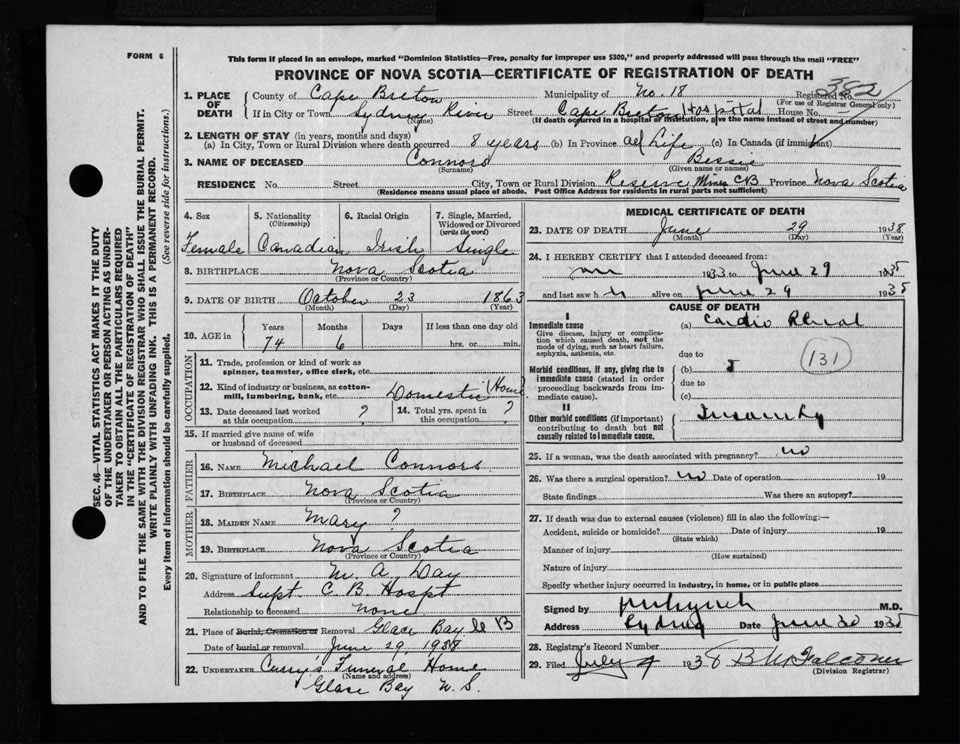 FORM 6
This form if placed in an envelope, marked "Dominion Statistics—Free, penalty for improper use $300," and properly addressed will pass through the mail "FREE"
PROVINCE OF NOVA SCOTIA—CERTIFICATE OF REGISTRATION OF DEATH
SEC. 46—VITAL STATISTICS ACT MAKES IT THE DUTY
OF THE UNDERTAKER OR PERSON ACTING AS UNDER-
TAKER TO OBTAIN ALL THE PARTICULARS REQUIRED
IN THE "CERTIFICATE OF REGISTRATION OF DEATH"
AND TO FILE THE SAME WITH THE DIVISION REGISTRAR WHO SHALL ISSUE THE BURIAL PERMIT.
WRITE PLAINLY WITH UNFADING INK. THIS IS A PERMANENT RECORD.
Every item of information should be carefully supplied. (See reverse side for instructions.)
1. PLACE OF DEATH
County of Cape Breton Municipality of No. 18 Registered No. 382
(For use of Registrar General only)
If in City or Town Sydney River Street Cape Breton Hospital House No.
(Name) (If death occurred in a hospital or institution, give the name instead of street and number)
2. LENGTH OF STAY (in years, months and days)
(a) In City, Town or Rural Division where death occurred 8 years (b) In Province all Life (c) In Canada (if immigrant)
3. NAME OF DECEASED Connors Bessie
(Surname) (Given name or names)
RESIDENCE No. Street City, Town or Rural Division Reserve Mines CB Province Nova Scotia
(Residence means usual place of abode. Post Office Address for residents in rural parts not sufficient)
4. Sex Female
5. Nationality (Citizenship) Canadian
6. Racial Origin Irish
7. Single, Married, Widowed or Divorced (write the word) Single
8. BIRTHPLACE Nova Scotia
(Province or Country)
9. DATE OF BIRTH October 23 1863
(Month) (Day) (Year)
10. AGE in Years Months Days If less than one day old
74 6 hrs. or min.
OCCUPATION
11. Trade, profession or kind of work as
spinner, teamster, office clerk, etc.
12. Kind of industry or business, as cotton-
mill, lumbering, bank, etc. Domestic (Home)
13. Date deceased last worked at this occupation ?
14. Total yrs. spent in this occupation ?
15. If married give name of wife
or husband of deceased
FATHER
16. NAME Michael Connors
17. BIRTHPLACE Nova Scotia
(Province or Country)
MOTHER
18. MAIDEN NAME Mary ?
19. BIRTHPLACE Nova Scotia
(Province or Country)
20. Signature of informant M. A. Day
Address Supt. C. B. Hospt
Relationship to deceased none
21. Place of Burial, Cremation or Removal Glace Bay C B
Date of burial or removal June 29, 1938
22. UNDERTAKER Curry's Funeral Home
(Name and address)
Glace Bay N. S.
MEDICAL CERTIFICATE OF DEATH
23. DATE OF DEATH June 29 1938
(Month) (Day) (Year)
24. I HEREBY CERTIFY that I attended deceased from:
1933 to June 29 1938
and last saw h alive on June 29 1938
CAUSE OF DEATH
I
Immediate cause (a) Cardio Renal
Give disease, injury or complica-
tion which caused death, not the
mode of dying, such as heart failure,
asphyxia, asthenia, etc.
131
due to
Morbid conditions, if any, giving rise to (b)
immediate cause (stated in order due to
proceeding backwards from im-
mediate cause). (c)
II
Other morbid conditions (if important) Insanity
contributing to death but not
causally related to immediate cause.
25. If a woman, was the death associated with pregnancy? no
26. Was there a surgical operation? no Date of operation 19
State findings Was there an autopsy?
27. If death was due to external causes (violence) fill in also the following:—
Accident, suicide or homicide? Date of injury 19
(State which)
Manner of injury
(How sustained)
Nature of injury
Specify whether injury occurred in industry, in home, or in public place
Signed by M.D.
Address Sydney Date June 30 1938
28. Registrar's Record Number
29. Filed July 4 1938 B McFalconer
(Division Registrar)